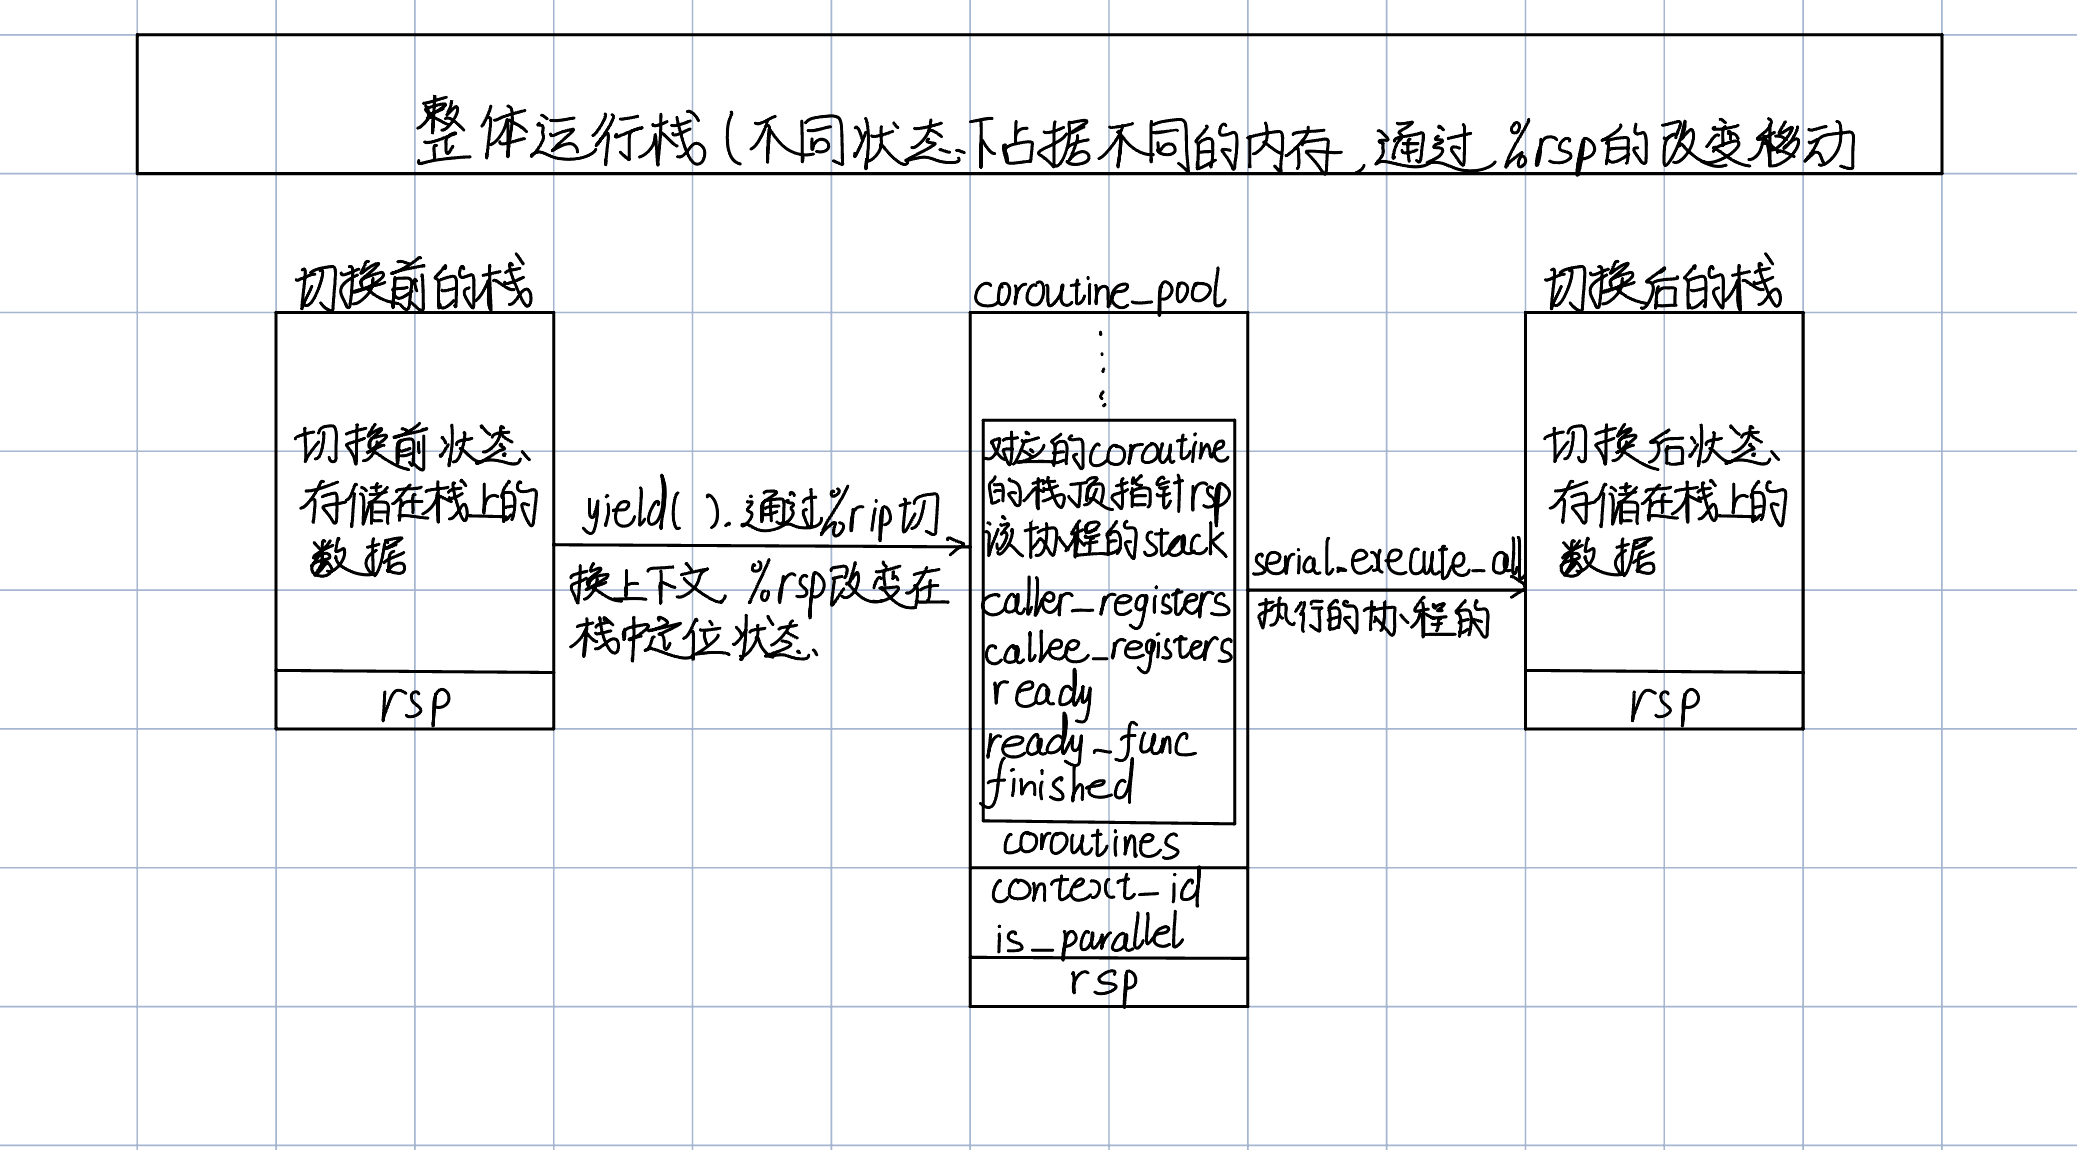 整体运行栈(不同状态下占据不同的内存,通过%rsp的改变移动
切换前的栈
切换前状态
存储在栈上的
数据
rsp
yield().通过%rip切
换上下文,%rsp改变在
栈中定位状态
coroutine_pool
对应的coroutine
的栈顶指针rsp
该协程的stack
caller_registers
callee_registers
ready
ready_func
finished
coroutines
context_id
is_parallel
rsp
serial_execute_all
执行的协程的
切换后的栈
切换后状态
存储在栈上的
数据
rsp